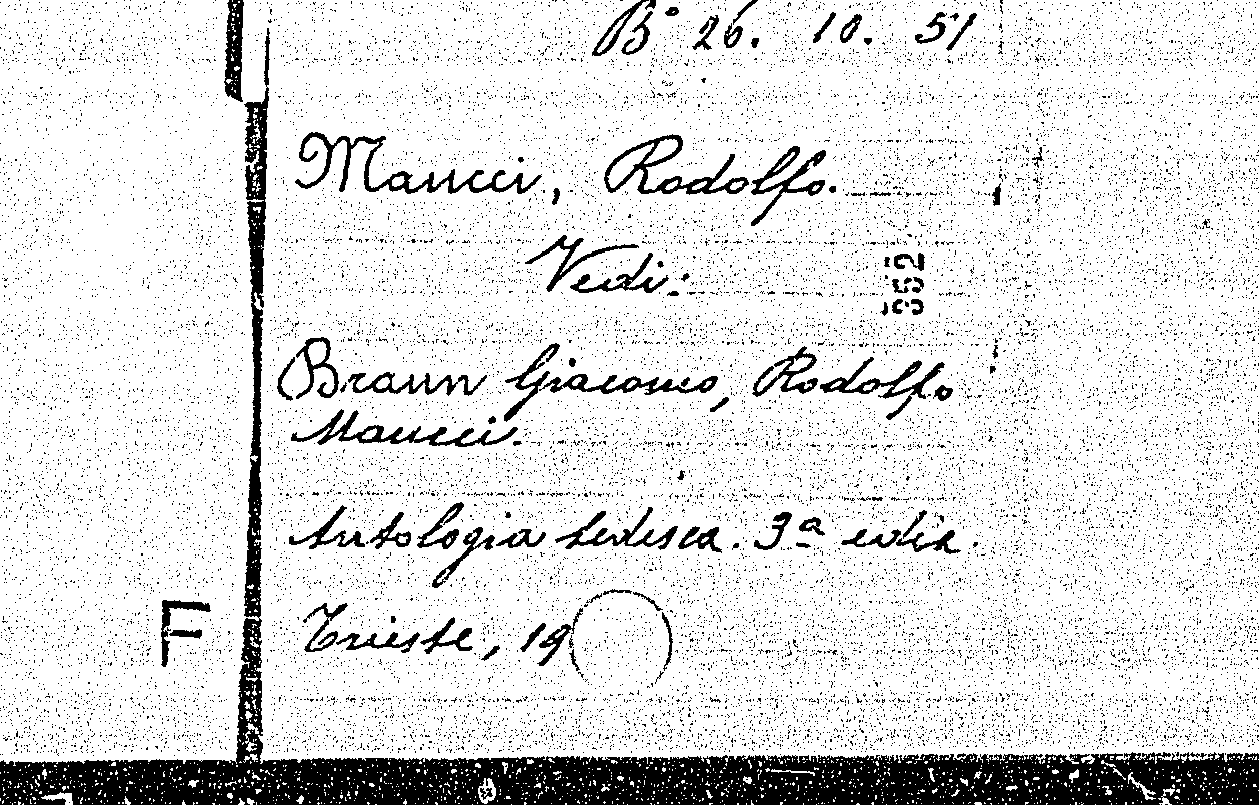 B° 26. 10. 51
Maucci, Rodolfo.
Vedi:
352
Braun Giacomo, Rodolfo
Maucci.
Antologia tedesca. 3ª ediz.
Trieste, 19
F